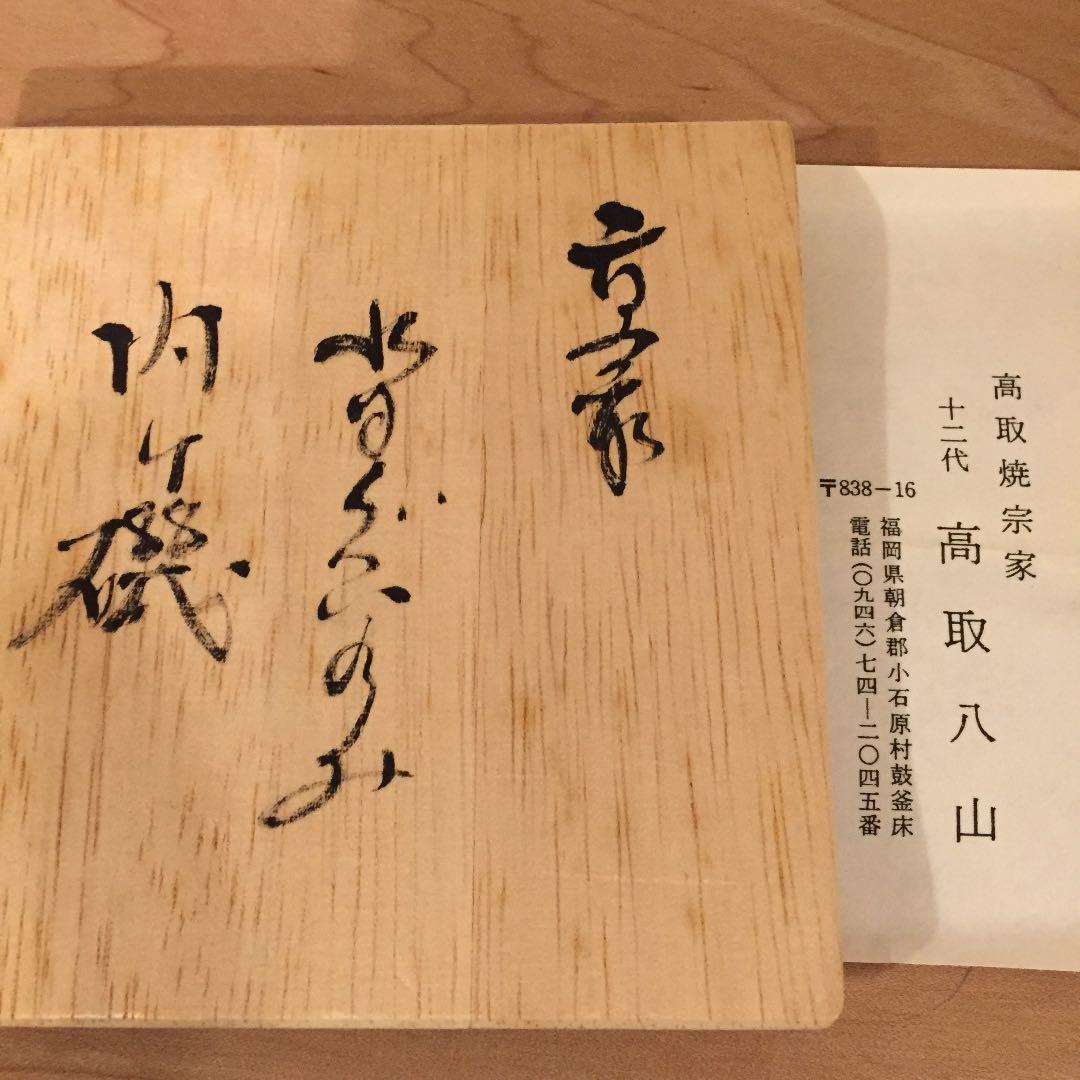 髙取焼宗家
十二代 高取八山
〒838-16
福岡県朝倉郡小石原村鼓釜床
電話(〇九四六)七四―二〇四五番
高取
のみ
内ケ磯